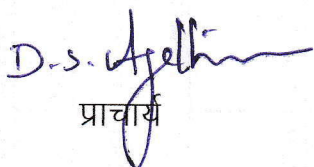 D.S.
प्राचार्य